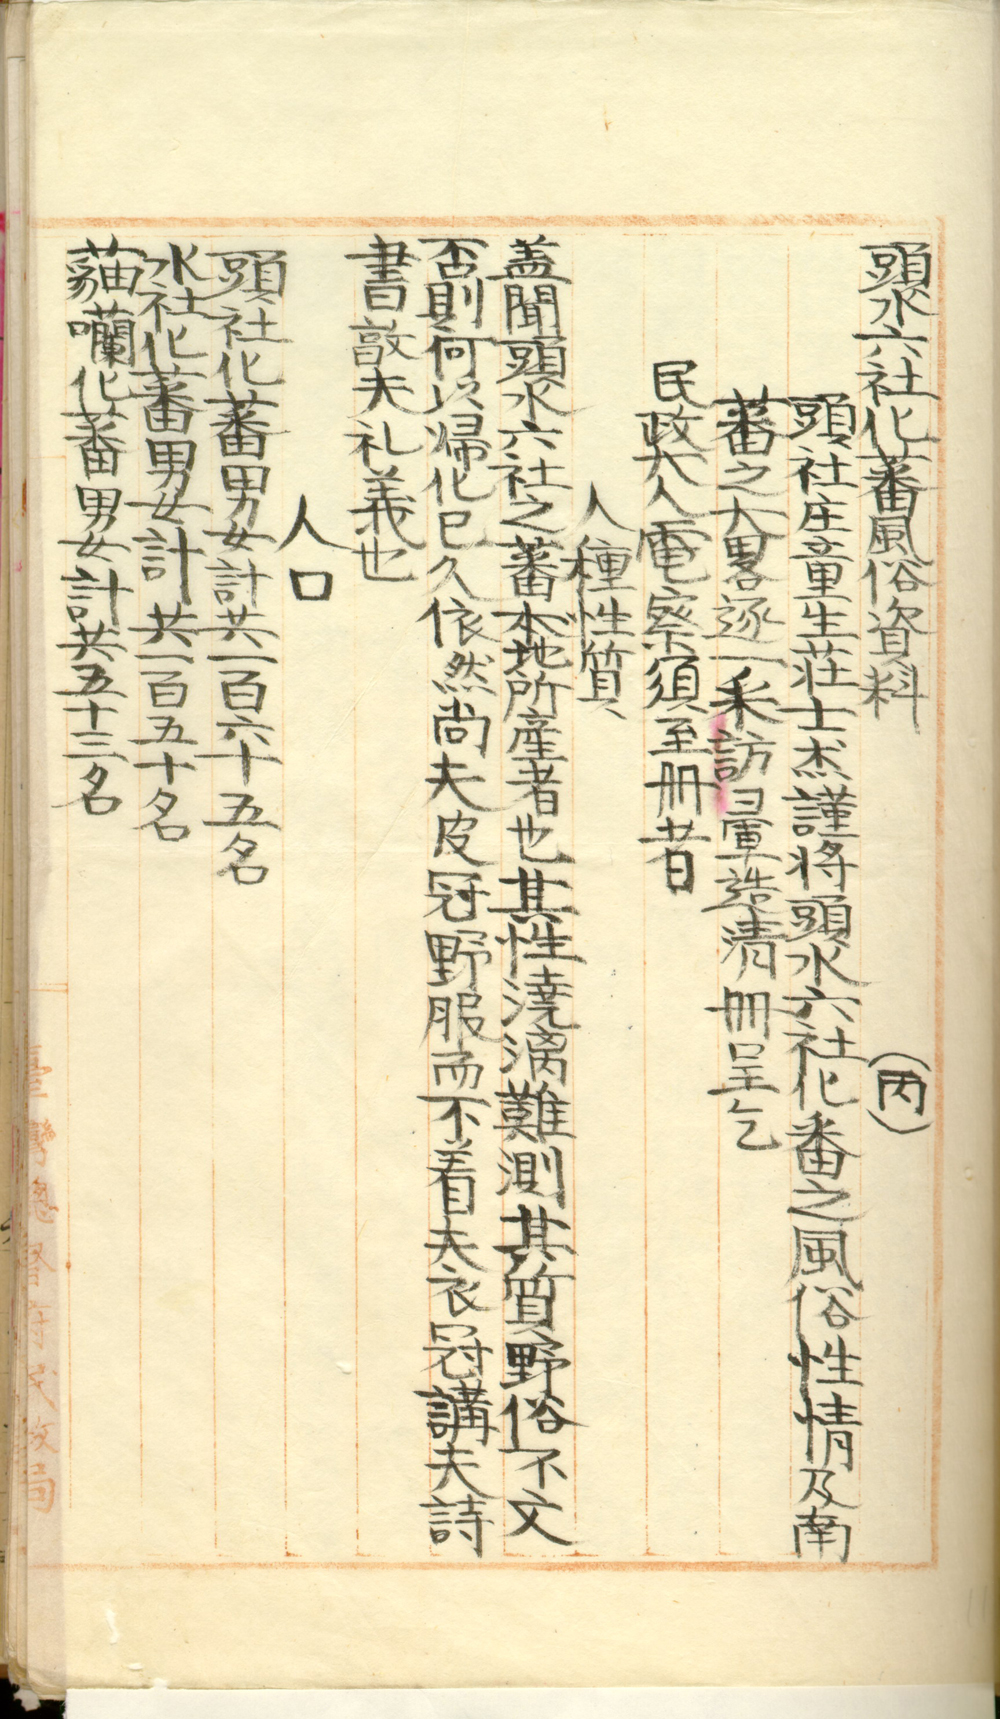 頭水六社化蕃風俗資料
(丙)
頭社庄童生莊士杰謹將頭水六社化番之風俗性情及南
蕃之大畧逐一采訪彙造清冊呈乞
民政大人電察須至冊者
人種性質、
盖聞頭水六社之蕃本地所産者也其性澆漓難測其質野俗不文
否則何以歸化已久依然尚夫皮冠野服而不着夫衣冠講夫詩
書敦夫礼義也
人口
頭社化蕃男女計共一百六十五名
水社化蕃男女計共一百五十名
貓囒化蕃男女計共五十三名
臺灣總督府民政局